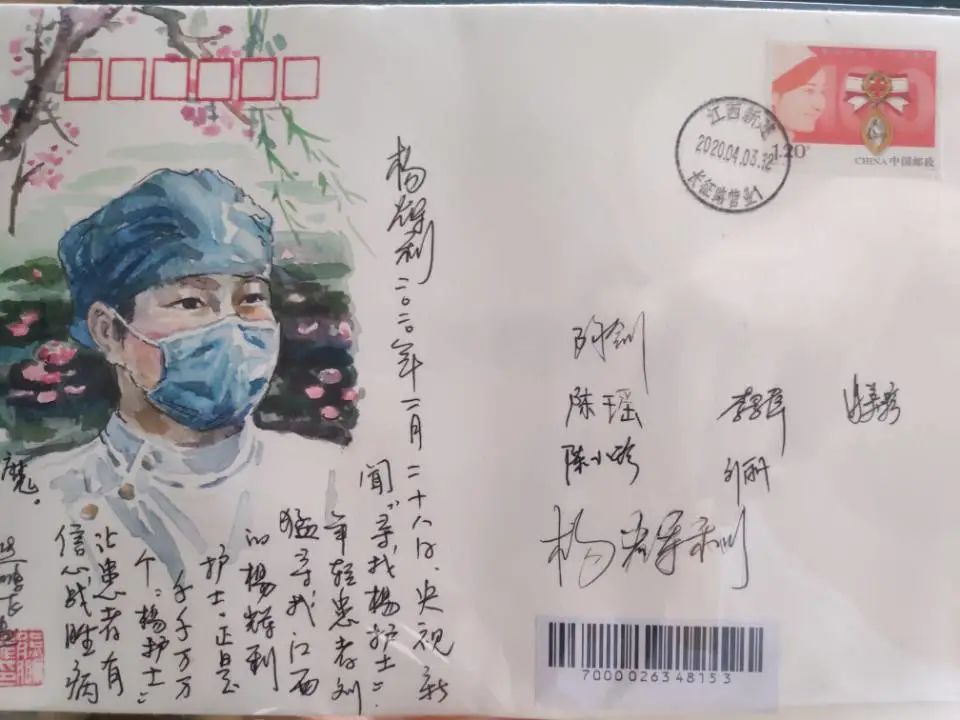 杨辉利
二〇二〇年二月二十八日，央视新
闻"寻找杨护士"
年轻患者刘
猛寻找江西
的杨辉利
护士。正是
千千万万
个"杨护士"
让患者有
信心战胜病
魔。
江西新建
2020.04.03.12
长征路营业1
1.20
CHINA 中国邮政
陈瑶
陈小玲
杨辉利
7000026348153